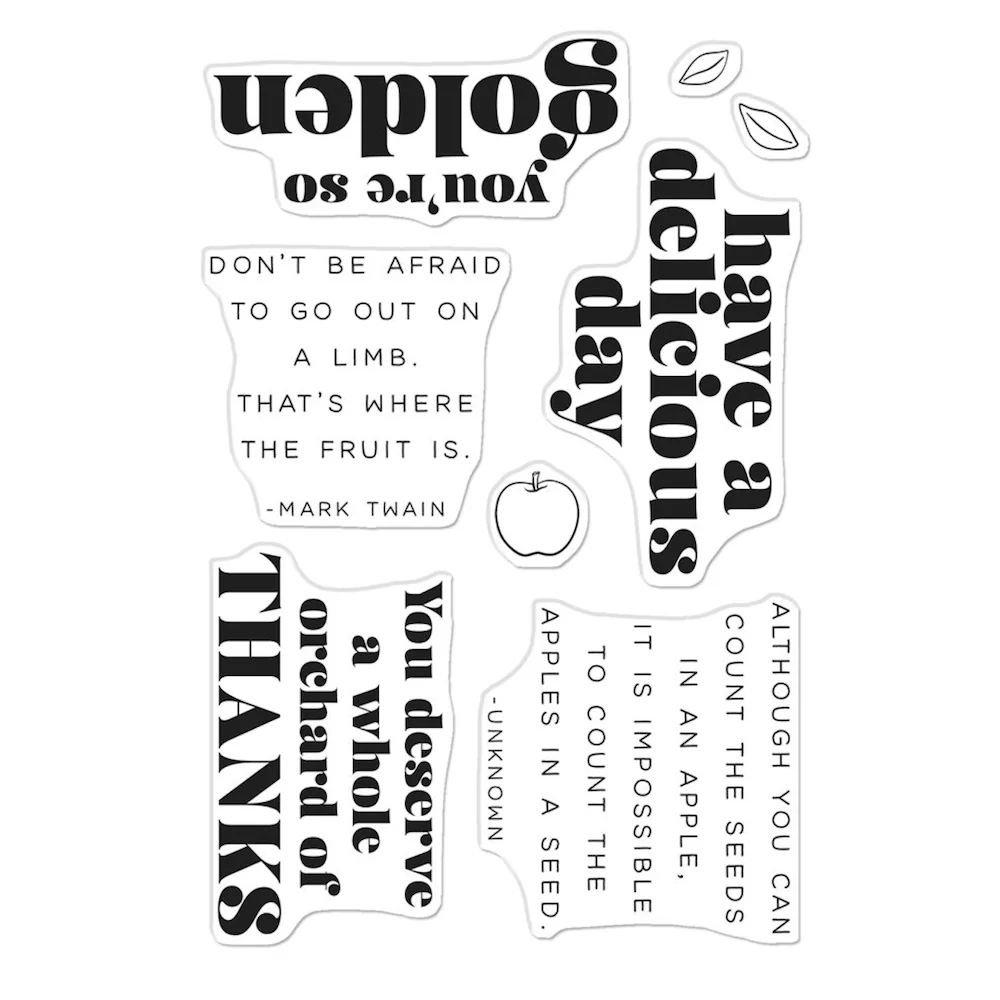 you're so
golden
have a
delicious
day
DON'T BE AFRAID
TO GO OUT ON
A LIMB.
THAT'S WHERE
THE FRUIT IS.
-MARK TWAIN
You deserve
a whole
orchard of
THANKS
ALTHOUGH YOU CAN
COUNT THE SEEDS
IN AN APPLE,
IT IS IMPOSSIBLE
TO COUNT THE
APPLES IN A SEED.
-UNKNOWN